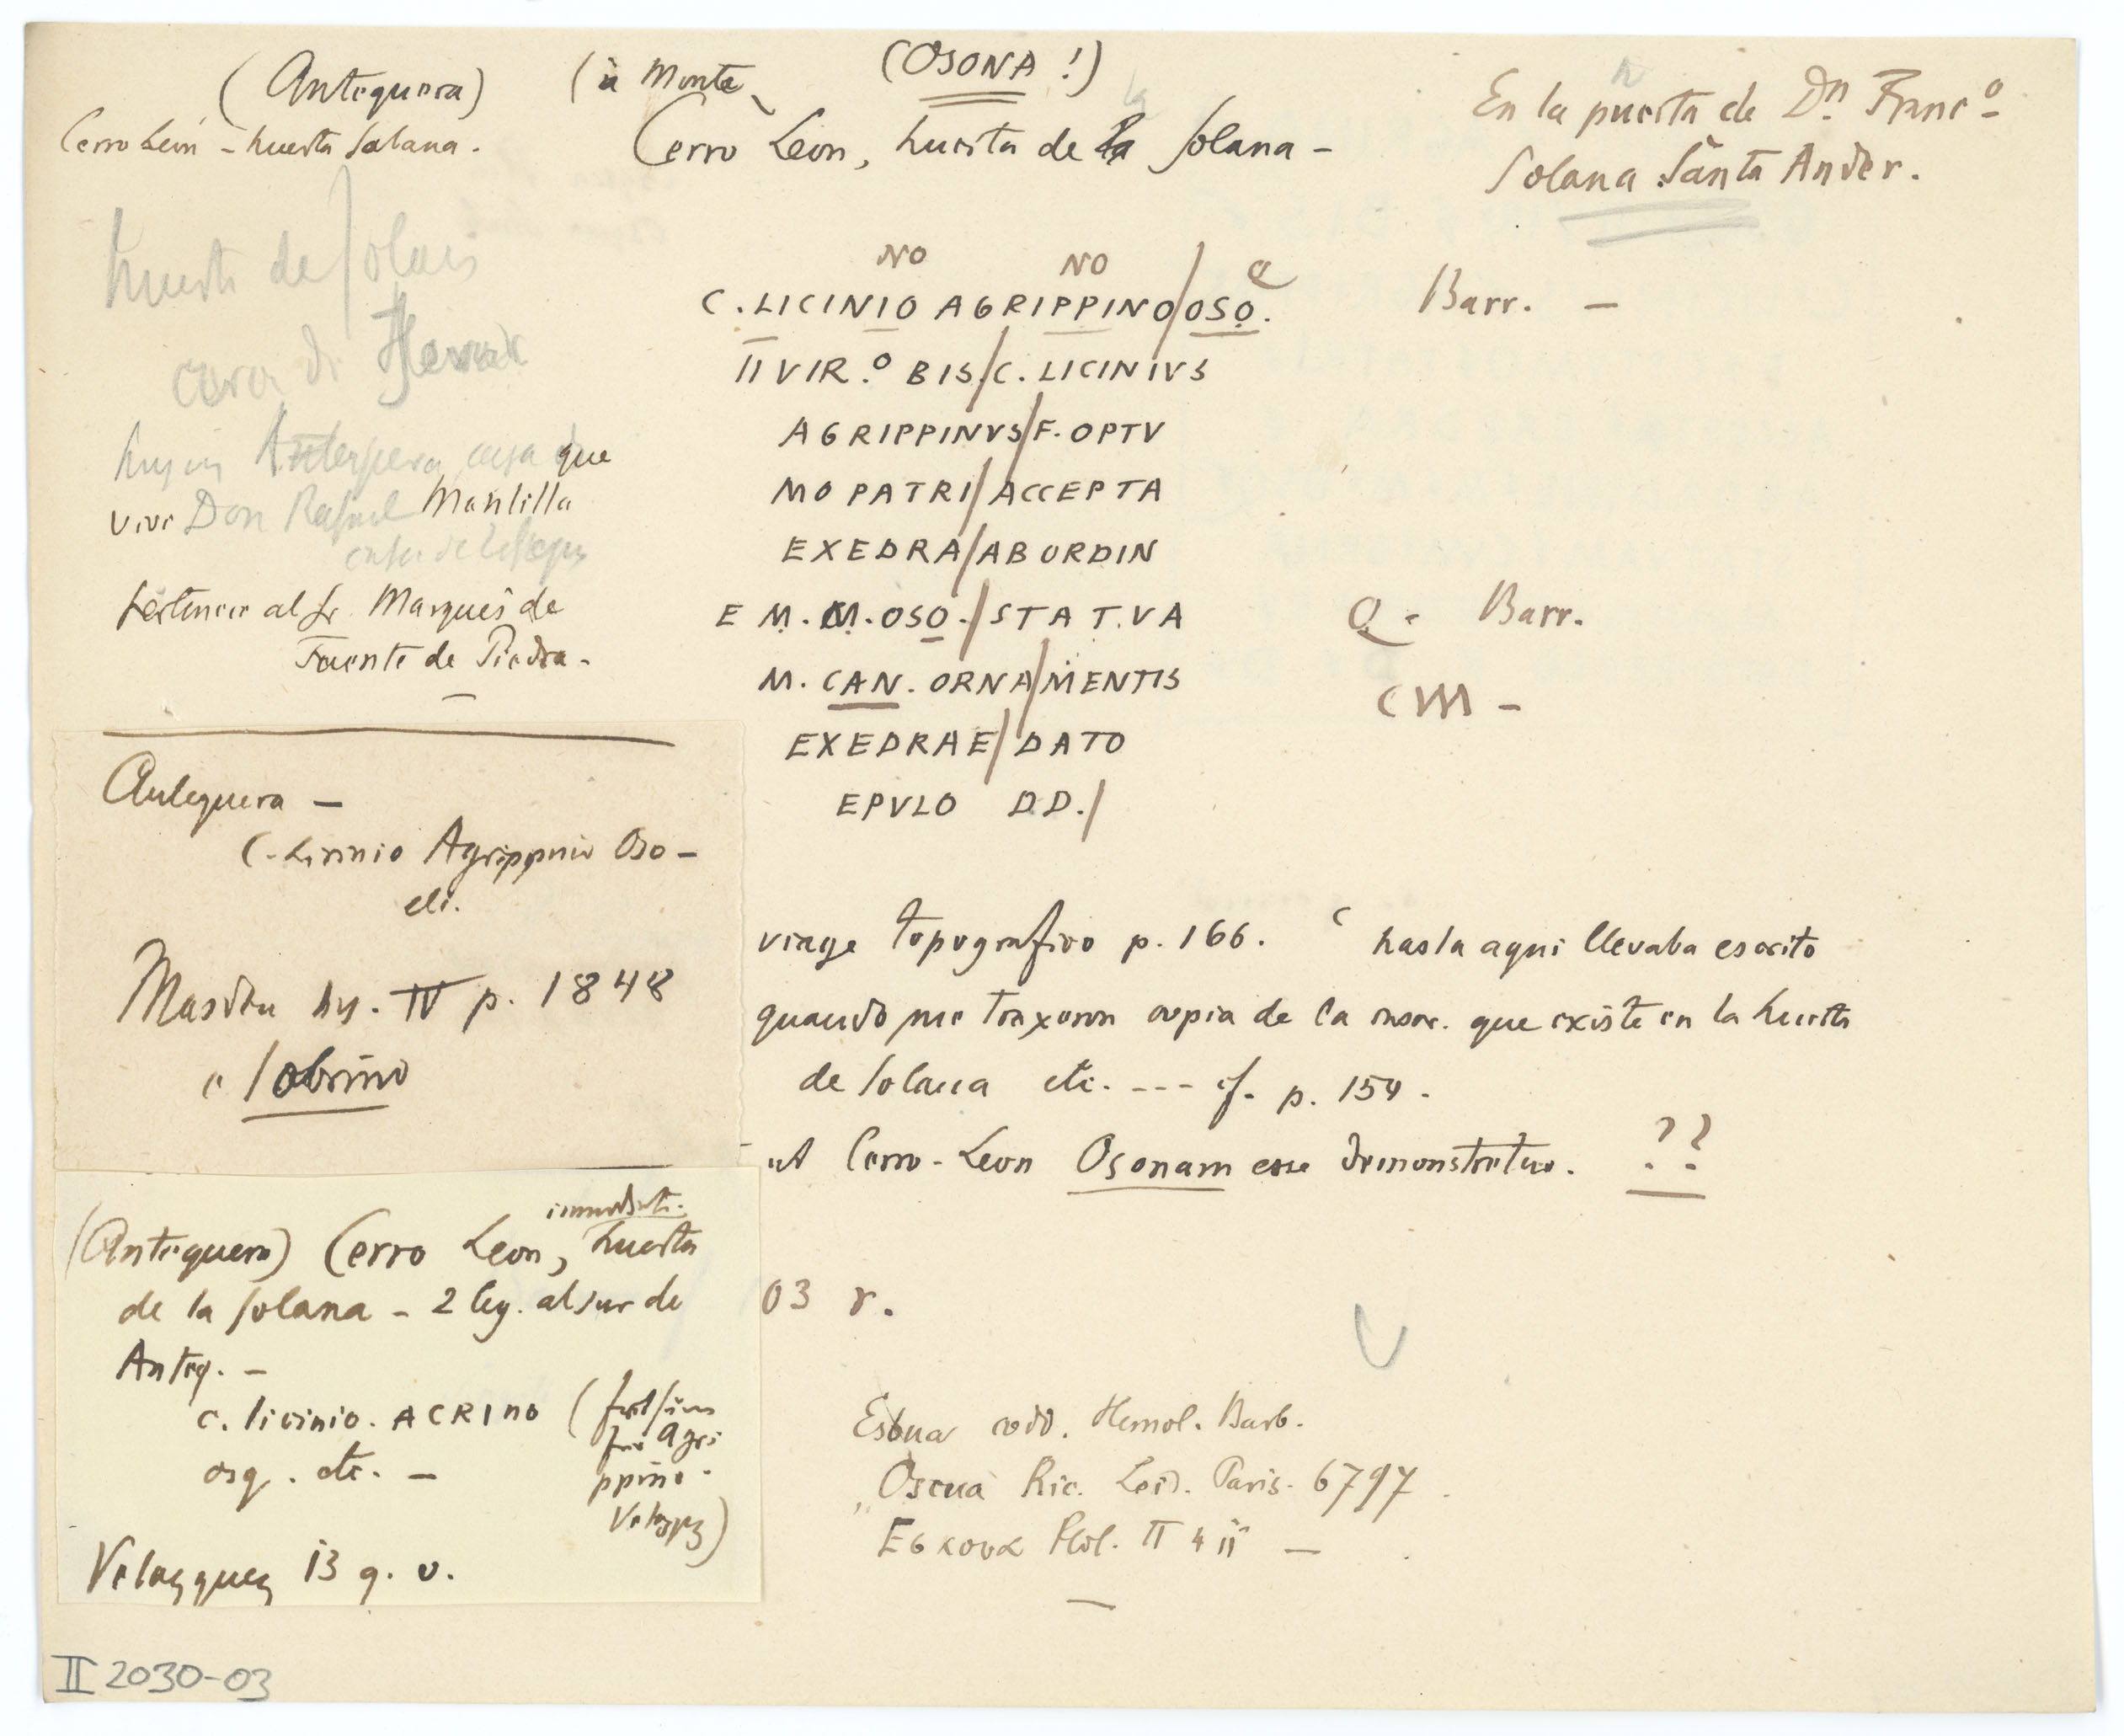 (Antequera) (in Monte (OSONA !)
Cerro León - huerta Solana.
Cerro Leon, huerta de la Solana -
En la puerta de Dn. Franco
Solana Santa Ander.
huerta de Solana
casa de
NO NO Q
C. LICINIO AGRIPPINO/OSO.
Barr. -
II VIR.O BIS./C. LICINIVS
AGRIPPINVS/F. OPTV
MO PATRI/ACCEPTA
EXEDRA/AB ORDIN
E M. M. OSO./STAT.VA
Q - Barr.
M. CAN. ORNA/MENTIS
CM -
EXEDRAE/DATO
EPVLO D.D./
hoy en Antequera casa que
vive Don Rafael Mantilla
pertenece al Sr. Marques de
Fuente de Piedra -
Antequera -
C. Licinio Agrippino Oso -
etc.
Masdeu hs. IV p. 1848
e Sobrino
viage topografico p. 166. c hasta aqui llevaba escrito
quando me traxeron copia de la inscr. que existe en la huerta
de Solana etc. --- cf. p. 154.
ut Cerro-Leon Osonam esse demonstretur. ??
(Antequera) Cerro Leon, huerta
de la Solana - 2 leg. al sur de
Anteq. -
c. licinio. ACRINO (
osq. etc. -
Agri
ppino.
Velazqz)
Velazquez 13 q. v.
03 r.
Escua codd. Hemol. Barb.
"Oscua Ric. Leid. Paris. 6797.
Εσκουα Ptol. II 4 11 -
II 2030-03